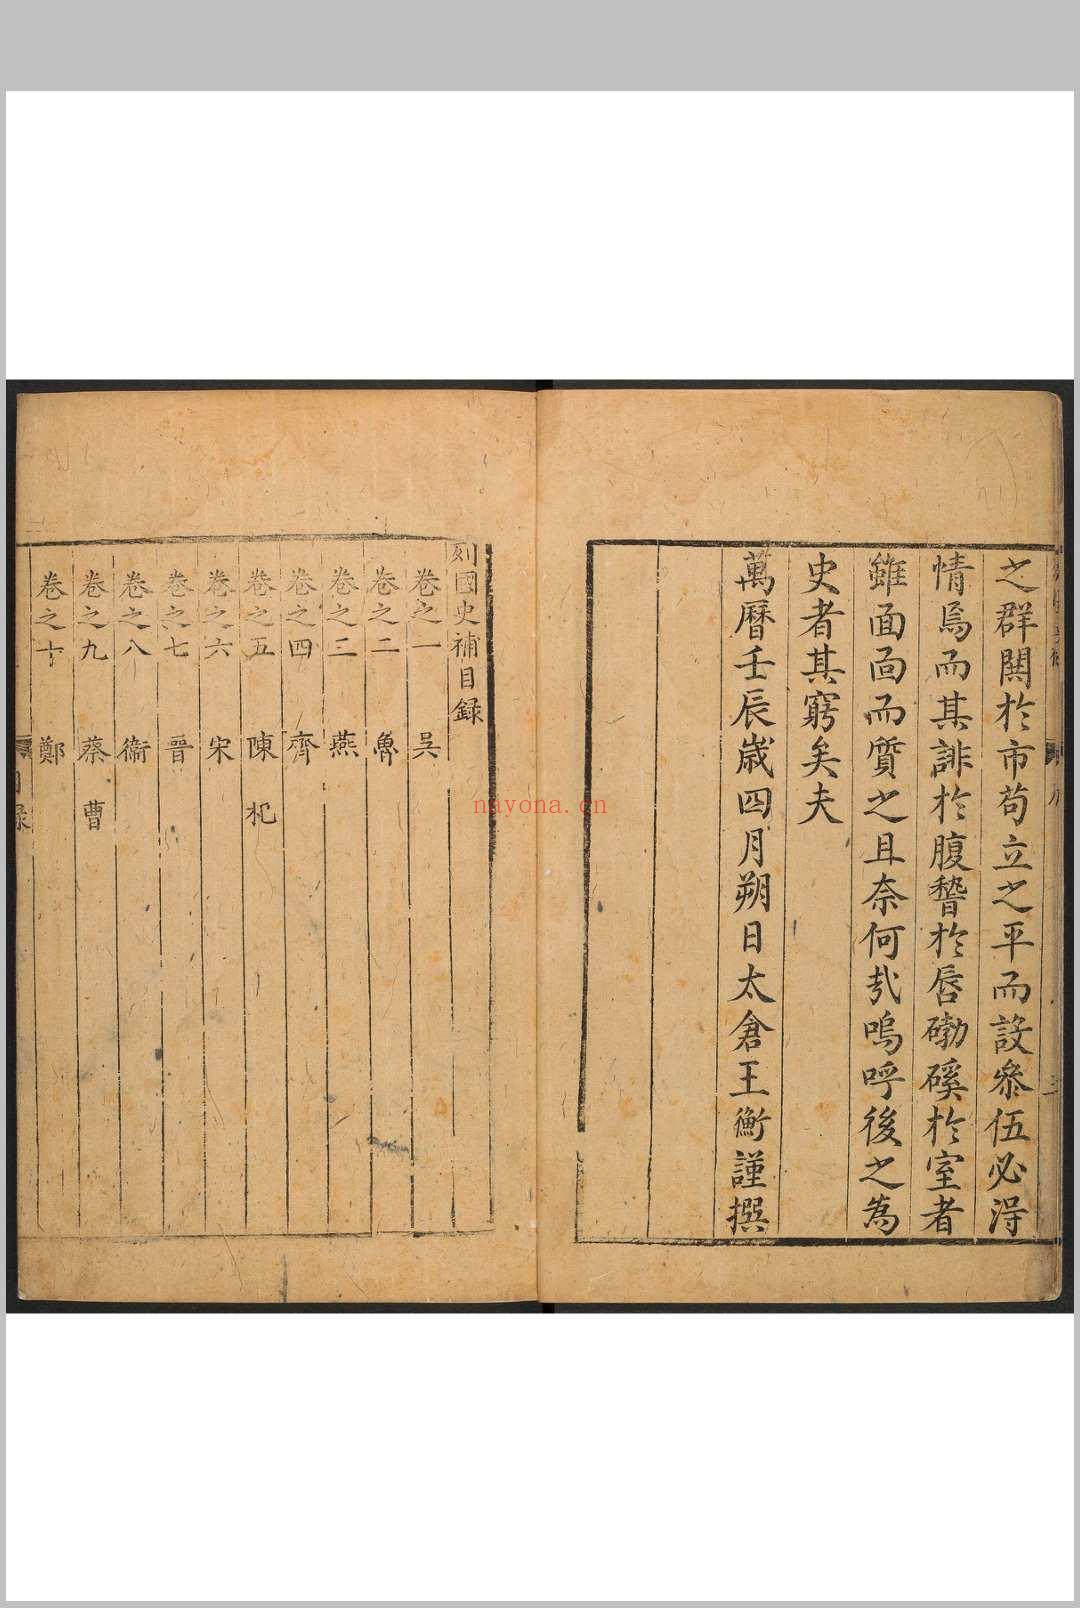 之群閧於市苟立之平而設叅伍必淂
情焉而其誹於腹稽於唇磡磎於室者
雖面靣而質之且奈何㢤嗚呼後之為
史者其窮矣夫
萬曆壬辰歲四月朔日太倉王衡謹撰
列國史補目録
卷之一 吳
卷之二 魯
卷之三 燕
卷之四 齊
卷之五 陳 杞
卷之六 宋
卷之七 晉
卷之八 衞
卷之九 蔡 曹
卷之十 鄭
目録
nayona.cn